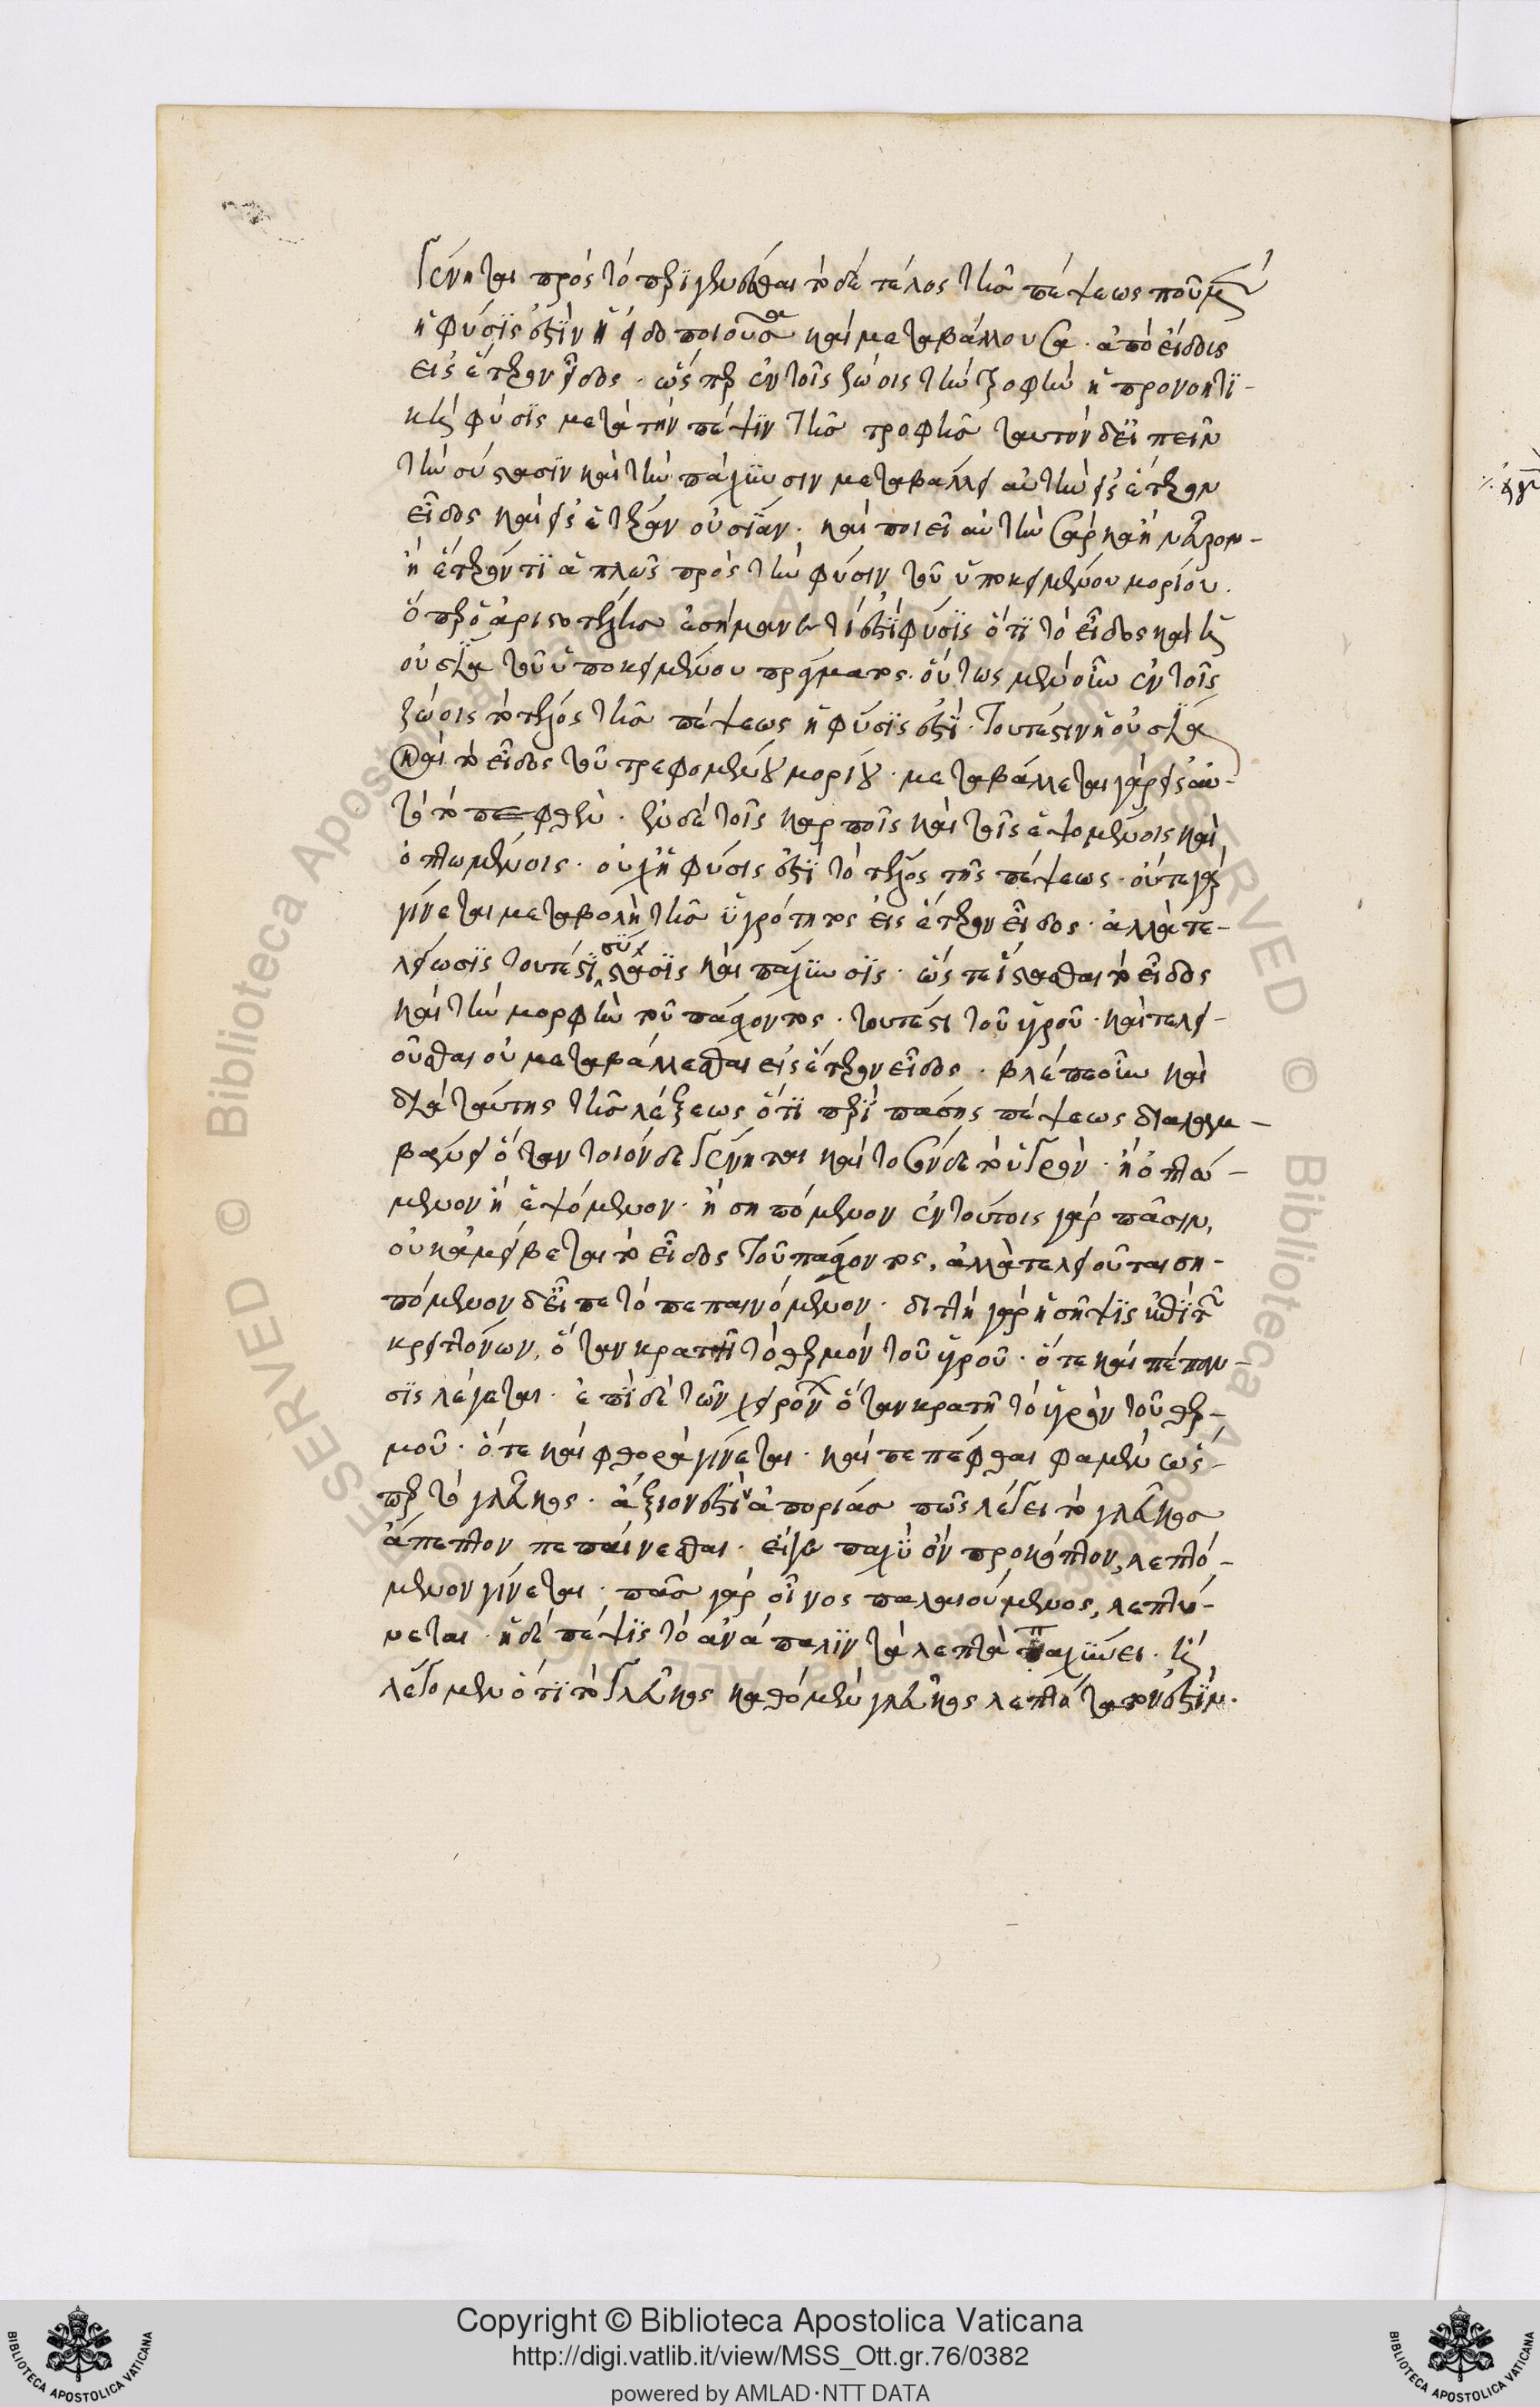 γένηται πρὸς τὸ περιγενέσθαι τὸ δὲ τέλος τῆς πέψεως που μὲν
ἡ φύσις ἐστὶν ἡ εἰδοποιοῦσα καὶ μεταβάλλουσα. ἀπὸ εἴδους
εἰς ἕτερον εἶδος. ὥσπερ ἐν τοῖς ζώοις τὴν τροφὴν ἡ προνοητι-
κὴ φύσις μετὰ τὴν πέψιν τῆς τροφῆς ταυτὸν δ' εἰπεῖν
τὴν σύστασιν καὶ τὴν πάχυνσιν μεταβάλλει αὐτὴν εἰς ἕτερον
εἶδος καὶ εἰς ἑτέραν οὐσίαν. καὶ ποιεῖ αὐτὴν σάρκα ἢ νεῦρον-
ἢ ἕτερόν τι ἁπλῶς πρὸς τὴν φύσιν τοῦ ὑποκειμένου μορίου.
ὅπερ ὁ ἀριστοτέλης ἐσήμανε τί ἐστι φύσις ὅτι τὸ εἶδος καὶ ἡ
οὐσία τοῦ ὑποκειμένου πράγματος. οὕτως μὲν οὖν ἐν τοῖς
ζώοις τὸ τέλος τῆς πέψεως ἡ φύσις ἐστί. τουτέστιν ἡ οὐσία
καὶ τὸ εἶδος τοῦ τρεφομένου μορίου. μεταβάλλεται γὰρ εἰς αὐ-
τὸ τὸ πεφθὲν. ἐν δὲ τοῖς καρποῖς καὶ τοῖς ἑψομένοις καὶ
ὀπτωμένοις. οὐχ ἡ φύσις ἐστὶ τὸ τέλος τῆς πέψεως. οὔτε γὰρ
γίνεται μεταβολὴ τῆς ὑγρότητος εἰς ἕτερον εἶδος. ἀλλὰ τε-
λείωσις τουτέστι σύστασις καὶ πάχυνσις. ὥστε ἵστασθαι τὸ εἶδος
καὶ τὴν μορφὴν τοῦ πάσχοντος. τουτέστι τοῦ ὑγροῦ. καὶ τελει-
οῦσθαι οὐ μεταβάλλεσθαι εἰς ἕτερον εἶδος. βλέπε οὖν καὶ
διὰ ταύτης τῆς λέξεως ὅτι περὶ πάσης πέψεως διαλαμ-
βάνει ὅταν τοιόνδε γένηται καὶ τοσόνδε τὸ ὑγρὸν. ἢ ὀπτώ-
μενον ἢ ἑψόμενον. ἢ σηπόμενον ἐν τούτοις γὰρ πᾶσιν,
οὐκ ἀμείβεται τὸ εἶδος τοῦ πάσχοντος, ἀλλὰ τελειοῦται ση-
πόμενον δ' εἶπε τὸ πεπαινόμενον. διττὴ γὰρ ἡ σῆψις ἐπὶ τῶν
κρειττόνων, ὅταν κρατῇ τὸ θερμὸν τοῦ ὑγροῦ. ὅτε καὶ πέπαν-
σις λέγεται. ἐπὶ δὲ τῶν χειρόνων ὅταν κρατῇ τὸ ὑγρὸν τοῦ θερ-
μοῦ. ὅτε καὶ φθορὰ γίνεται. καὶ πεπέφθαι φαμὲν ὥσ-
περ τὸ γλεῦκος. ἄξιον ἐστὶν ἀπορίας πῶς λέγει τὸ γλεῦκος
ἄπεπτον πεπαίνεσθαι. εἴγε παχὺ ὂν προκόπτον, λεπτό-
μενον γίνεται. πᾶς γὰρ οἶνος παλαιούμενος, λεπτύ-
νεται. ἡ δὲ πέψις τὸ ἀνάπαλιν τὰ λεπτὰ παχύνει. ἢ
λέγομεν ὅτι τὸ γλεῦκος καθὸ μὲν γλεῦκος λεπτότατόν ἐστιν.
Copyright © Biblioteca Apostolica Vaticana
http://digi.vatlib.it/view/MSS_Ott.gr.76/0382
powered by AMLAD·NTT DATA